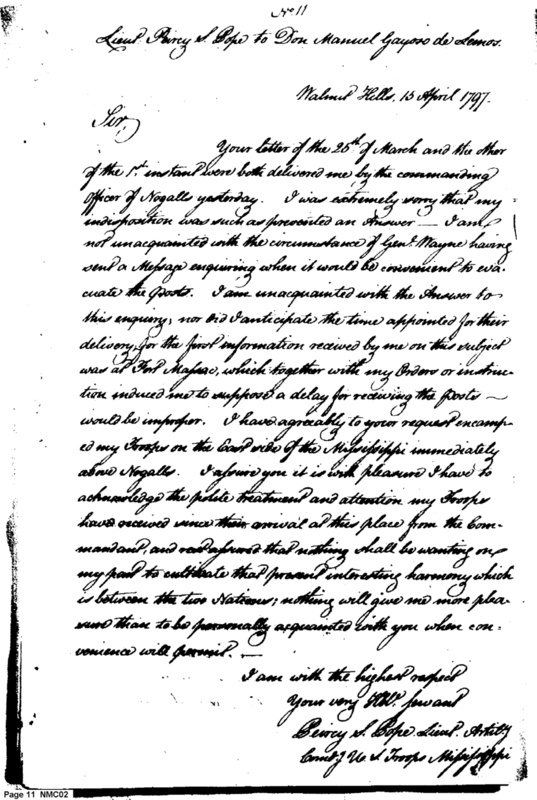 No 11
Lieut. Percy S. Pope to Don Manuel Gayoso de Lemos.
Walnut Hills, 15 April 1797.
Sir,
Your letter of the 25th of March and the other
of the 1st instant were both delivered me by the commanding
Officer of Nogalls yesterday. I was extremely sorry that my
indisposition was such as prevented an Answer — I am
not unacquainted with the circumstance of Genl. Wayne having
sent a Message enquiring when it would be convenient to eva-
cuate the Posts. I am unacquainted with the Answer to
this enquiry, nor did I anticipate the time appointed for their
delivery, for the first information received by me on this subject
was at Fort Massac, which together with my Orders or instruc-
tion induced me to suppose a delay for receiving the Posts —
would be improper. I have agreeably to your request encamp-
ed my Troops on the East side of the Mississippi immediately
above Nogalls. I assure you it is with pleasure I have to
acknowledge the polite treatment and attention my Troops
have received since their arrival at this place from the Com-
mandant, and rest assured that nothing shall be wanting on
my part to cultivate that present interesting harmony which
is between the two Nations; nothing will give me more plea-
sure than to be personally acquainted with you when con-
venience will permit. —
I am with the highest respect
Your very Hble. servant
Percy S. Pope Lieut. Artily
Comdg U. S. Troops Mississippi
Page 11 NMC02